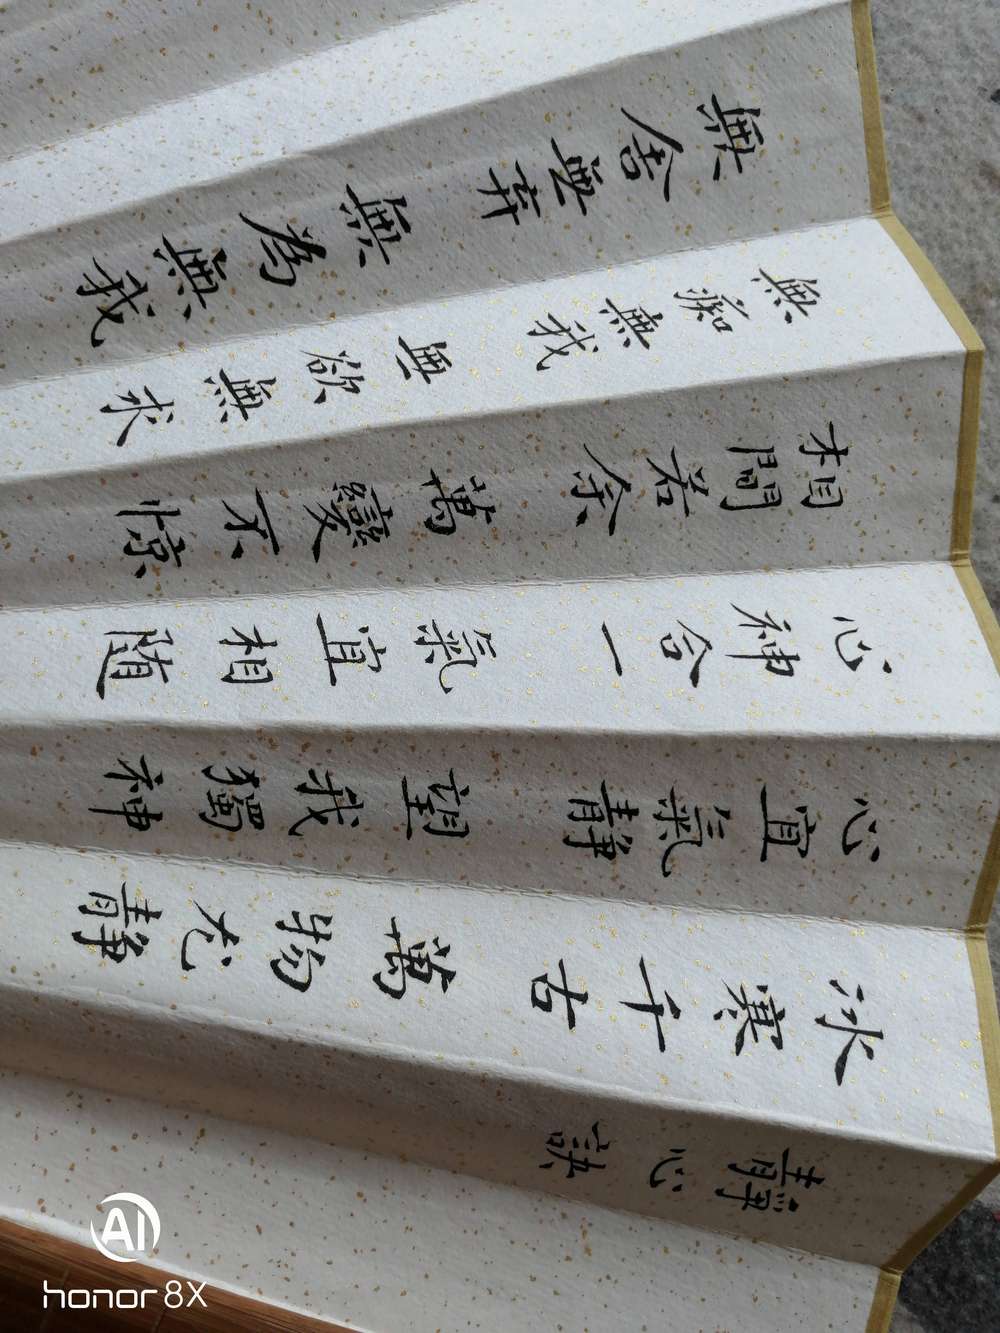 靜心訣
冰寒千古 萬物尤靜
心宜氣靜 望我獨神
心神合一 氣宜相随
相間若余 萬變不惊
無痴無我 無欲無求
無舍無弃 無為無我
AI
honor 8X